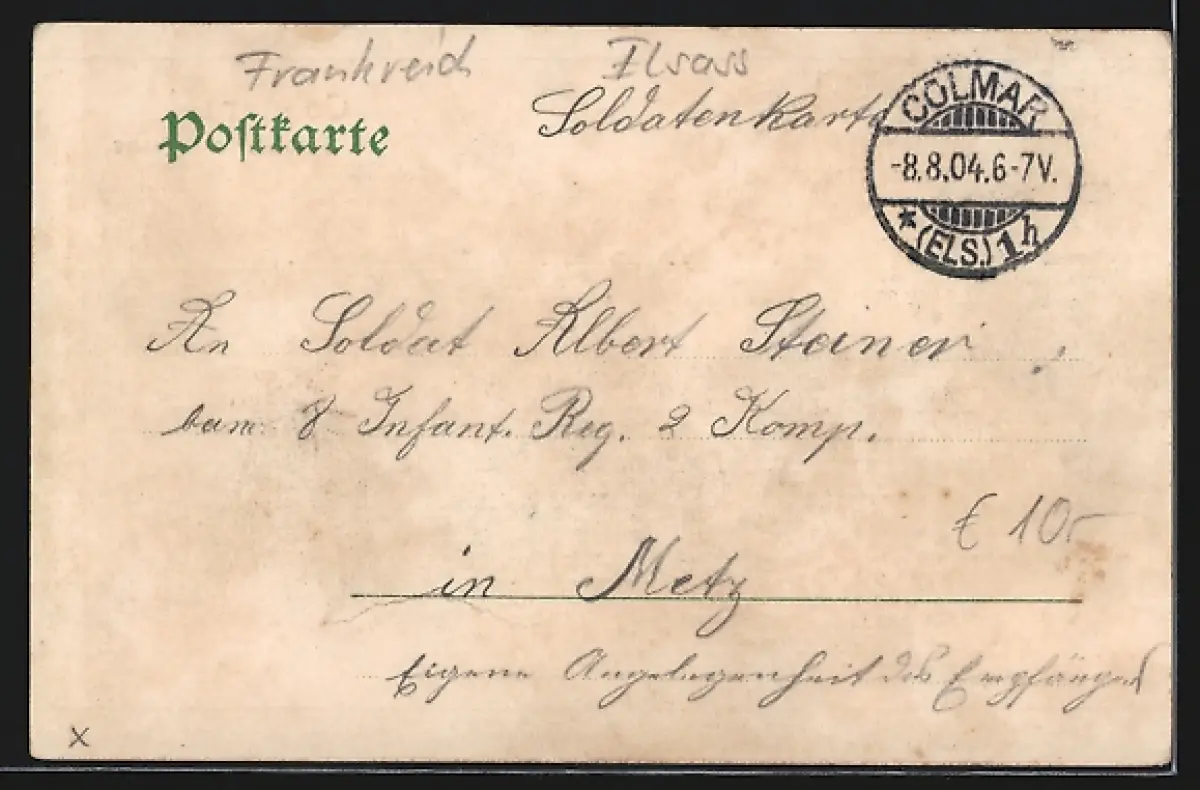 Frankreich Elsass
Postkarte Soldatenkarte
COLMAR
-8.8.04.6-7V.
* (ELS.) 1h
An Soldat Albert Steiner
bam 8 Infant. Reg. 2 Komp.
€ 10,-
in Metz
Eigene Angelegenheit des Empfängers
x